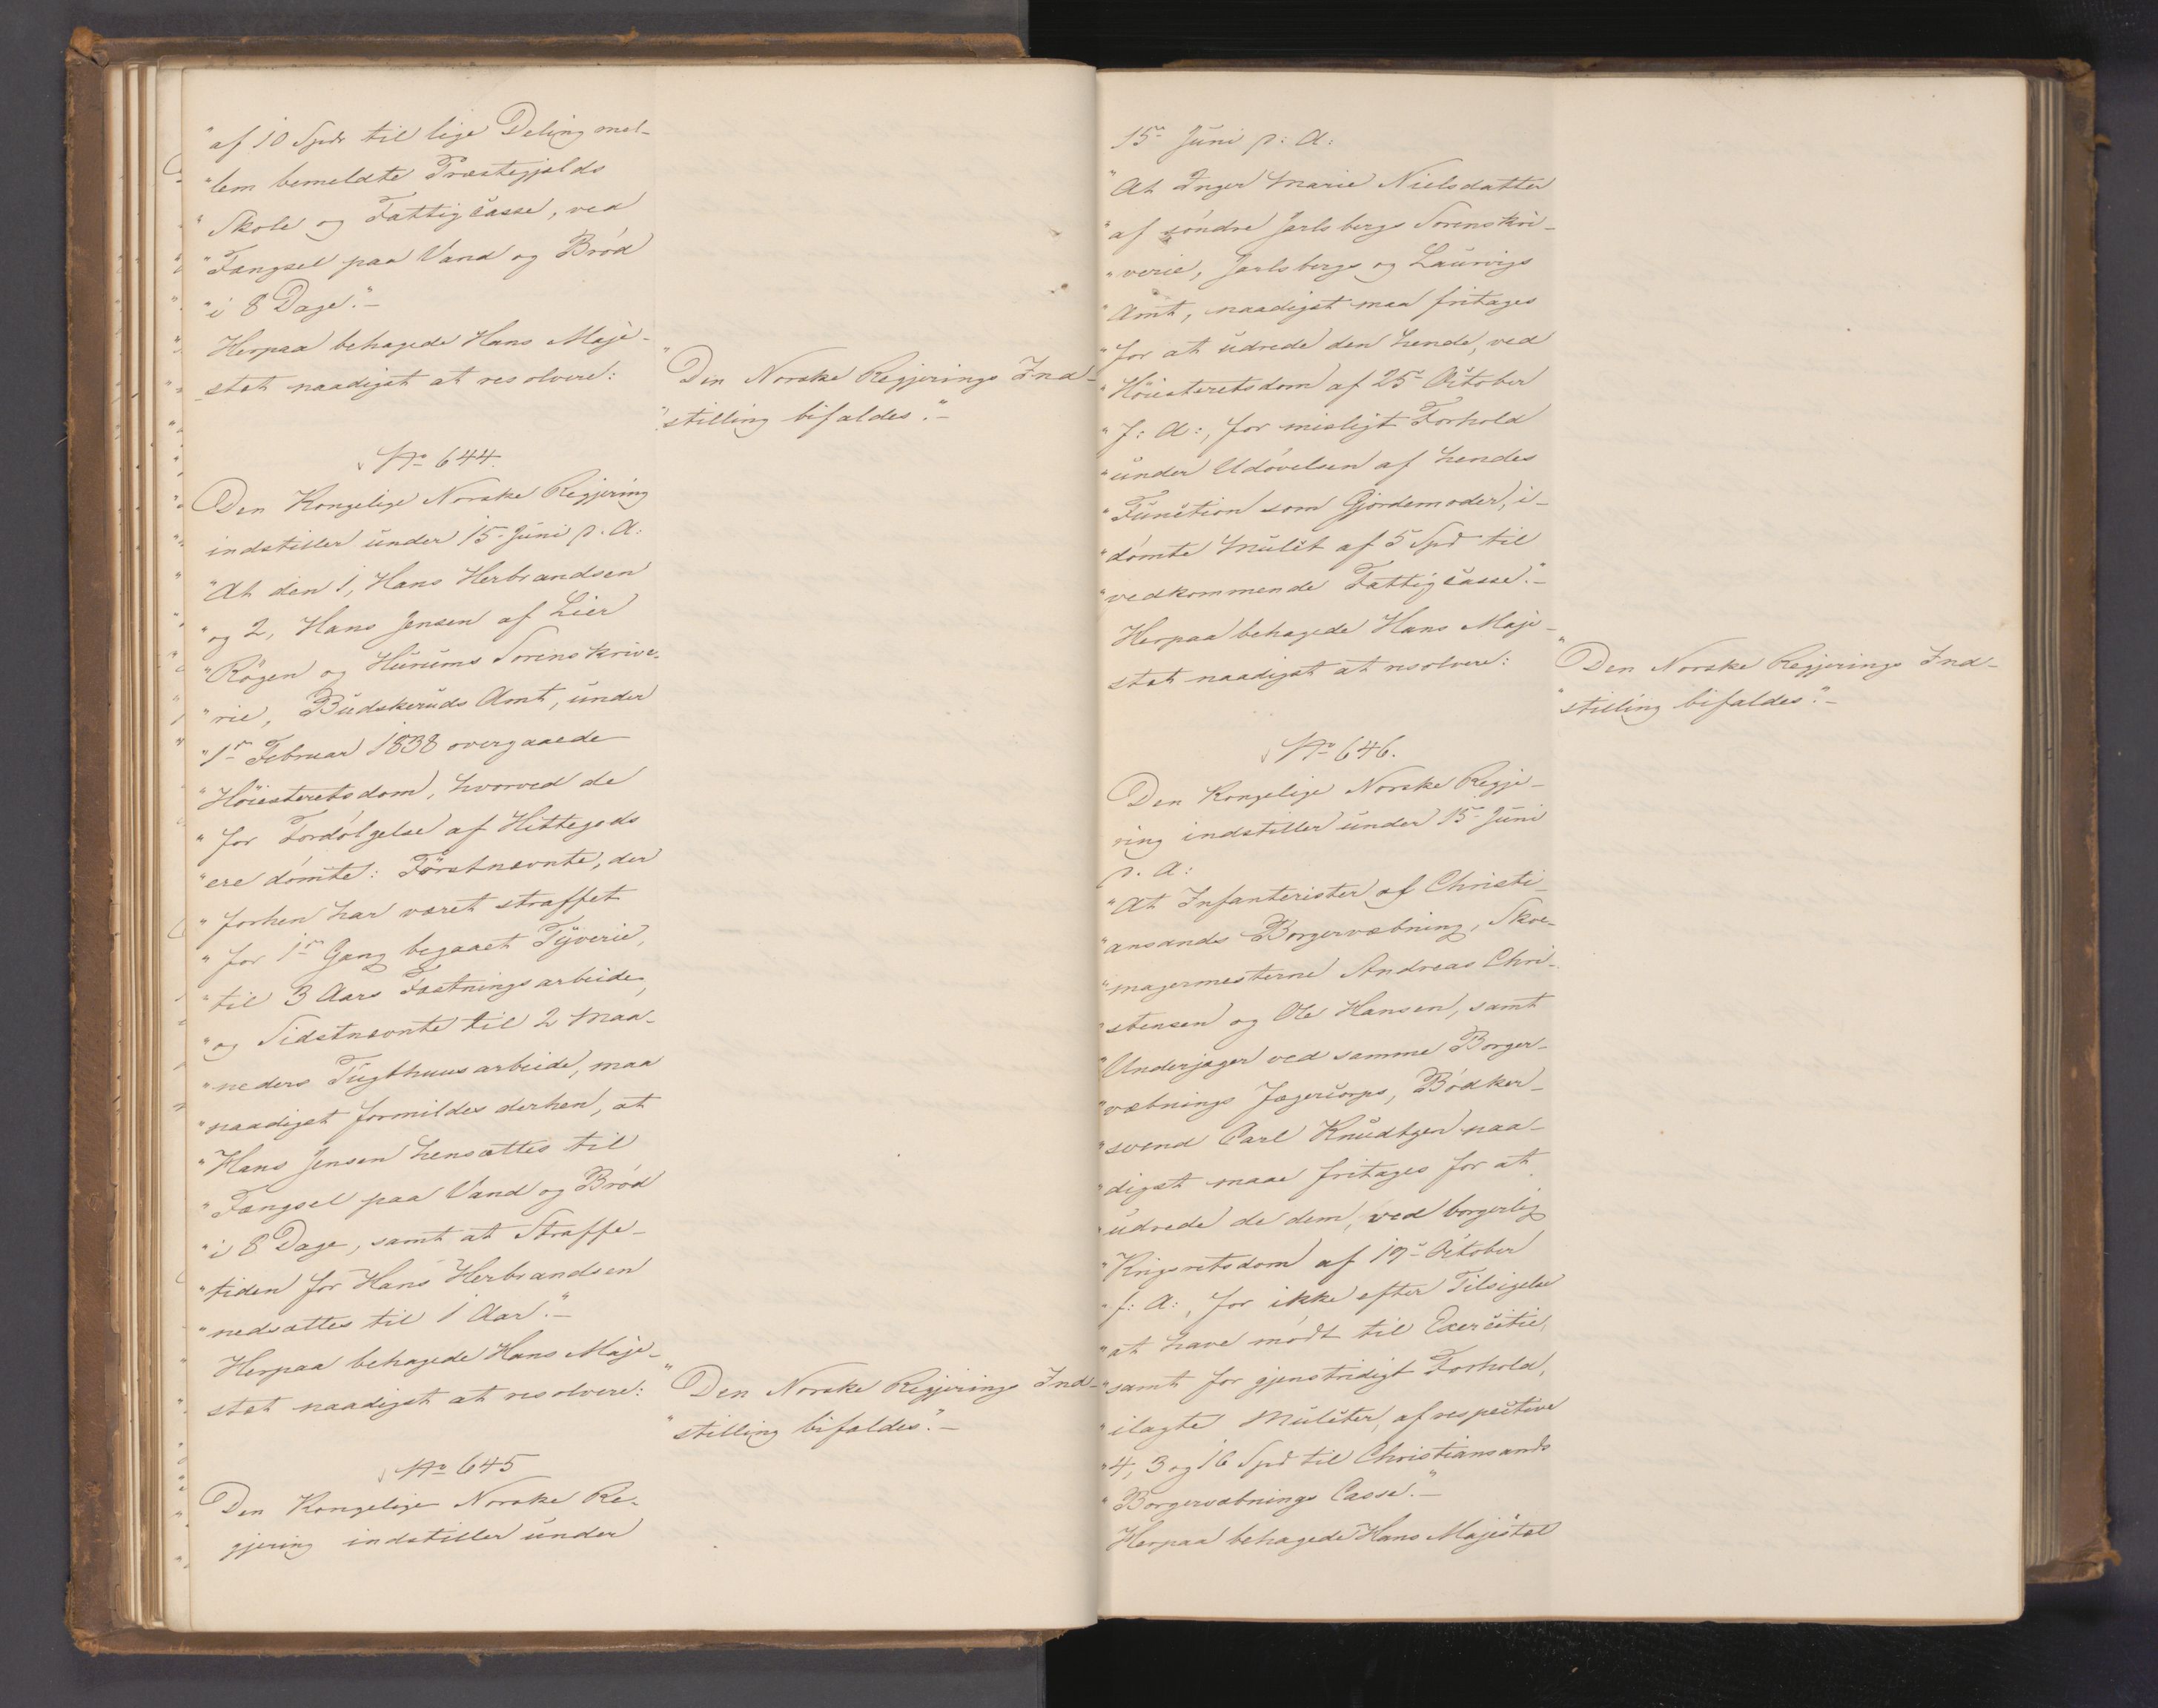 "af 10 Spdr til lige Deling mel-
"lem bemeldte Præstegjelds
"Skole og Fattigcasse, ved
"Fængsel paa Vand og Brød
"i 8 Dage."-
Herpaa behagede Hans Maje-
stæt naadigst at resolvere:
"Den Norske Regjerings Ind-
"stilling bifaldes."-
No 644.
Den Kongelige Norske Regjering
indstiller under 15- Juni p. A:
"At den 1, Hans Herbrandsen
"og 2, Hans Jensen af Lier
"Røgen og Hurums Sorenskrive-
"rie, Budskeruds Amt, under
"1ste Februar 1838 overgaaede
"Høiesteretsdom, hvorved de
"for Fordølgelse af Hittegods
"ere dømte: Førstnævnte, der
"forhen har været straffet
"for 1ste Gang begaaet Tyverie,
"til 3 Aars Fæstningsarbeide,
"og Sidstnævnte til 2 Maa-
"neders Tugthuusarbeide, maa
"naadigst formildes derhen, at
"Hans Jensen hensættes til
"Fængsel paa Vand og Brød
"i 8 Dage, samt at Straffe-
"tiden for Hans Herbrandsen
"nedsættes til 1 Aar."-
Herpaa behagede Hans Maje-
stæt naadigst at resolvere:
"Den Norske Regjerings Ind-
"stilling bifaldes."-
No 645
Den Kongelige Norske Re-
gjering indstiller under
15- Juni p: A:
"At Inger Marie Nielsdatter
"af søndre Jarlsbergs Sorenskri-
"verie, Jarlsbergs og Laurvigs
"Amt, naadigst maa fritages
"for at udrede den hende, ved
"Høiesteretsdom af 25- October
"f: A:, for misligt Forhold
"under Udøvelsen af hendes
"Function som Gjordemoder, i-
"dømte Mulct af 5 Spd til
"vedkommende Fattigcasse."-
Herpaa behagede Hans Maje-
stæt naadigst at resolvere:
"Den Norske Regjerings Ind-
"stilling bifaldes."-
No 646.
Den Kongelige Norske Regje-
ring indstiller under 15- Juni
p. A:
"At Infanterister af Christi-
"ansands Borgervæbning, Skoe-
"magermesterne Andreas Chri-
"stensen og Ole Hansen, samt
"Underjæger ved samme Borger-
"væbnings Jægercorps, Bødker-
"svend Carl Knudtzen naa-
"digst maae fritages for at
"udrede de dem, ved borgerlig
"Krigsretsdom af 19- October
"f: A:, for ikke efter Tilsigelse
"at have mødt til Exercitie,
"samt for gjenstridigt Forhold,
"ilagte Mulcter, af respective
"4, 3 og 16 Spd til Christiansands
"Borgervæbnings Casse."-
Herpaa behagede Hans Majestæt